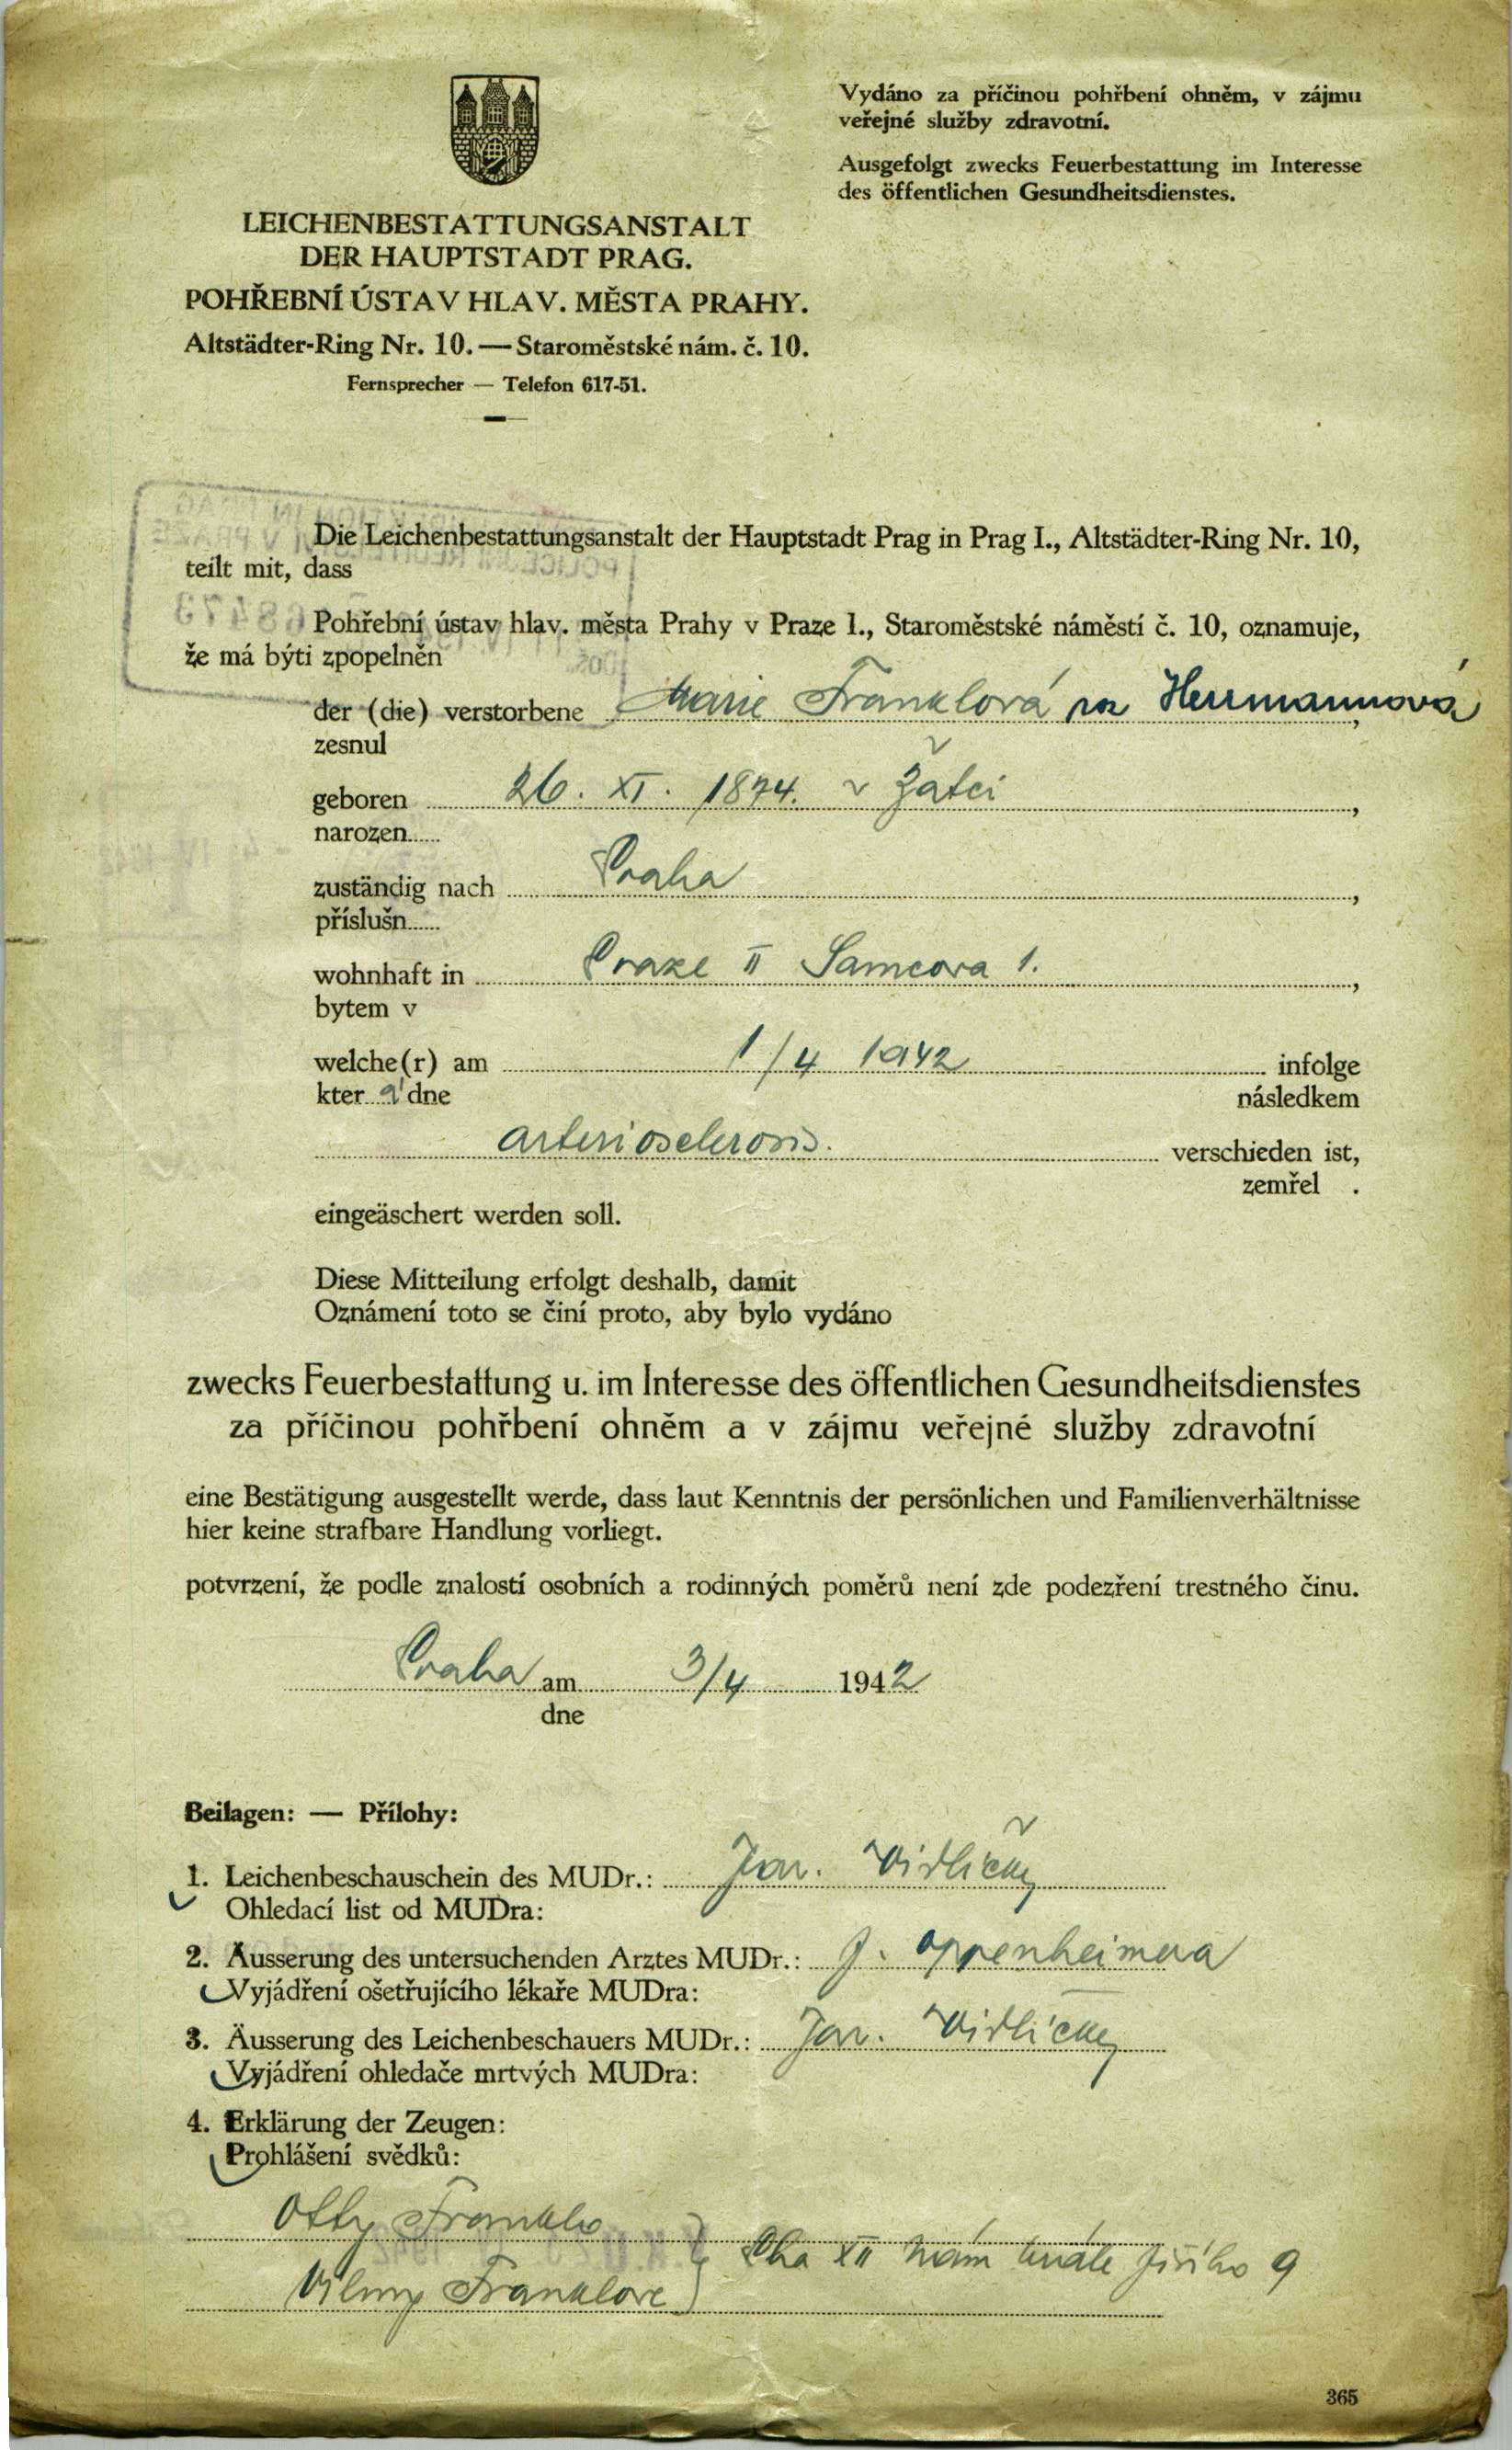 Vydáno za příčinou pohřbení ohněm, v zájmu
veřejné služby zdravotní.
Ausgefolgt zwecks Feuerbestattung im Interesse
des öffentlichen Gesundheitsdienstes.
LEICHENBESTATTUNGSANSTALT
DER HAUPTSTADT PRAG.
POHŘEBNÍ ÚSTAV HLAV. MĚSTA PRAHY.
Altstädter-Ring Nr. 10. — Staroměstské nám. č. 10.
Fernsprecher — Telefon 617-51.
Die Leichenbestattungsanstalt der Hauptstadt Prag in Prag I., Altstädter-Ring Nr. 10,
teilt mit, dass
Pohřební ústav hlav. města Prahy v Praze I., Staroměstské náměstí č. 10, oznamuje,
že má býti zpopelněn
der (die) verstorbene Marie Franklová roz Herrmannová,
zesnul
geboren 26. XI. 1874. v Žatci,
narozen......
zuständig nach Praha,
příslušn......
wohnhaft in Praze II Samcova 1.,
bytem v
welche(r) am 1/4 1942 infolge
která dne následkem
arteriosclerosis. verschieden ist,
zemřel .
eingeäschert werden soll.
Diese Mitteilung erfolgt deshalb, damit
Oznámení toto se činí proto, aby bylo vydáno
zwecks Feuerbestattung u. im Interesse des öffentlichen Gesundheitsdienstes
za příčinou pohřbení ohněm a v zájmu veřejné služby zdravotní
eine Bestätigung ausgestellt werde, dass laut Kenntnis der persönlichen und Familienverhältnisse
hier keine strafbare Handlung vorliegt.
potvrzení, že podle znalostí osobních a rodinných poměrů není zde podezření trestného činu.
Praha am 3/4 1942
dne
Beilagen: — Přílohy:
1. Leichenbeschauschein des MUDr.: Jar. Vidličky
Ohledací list od MUDra:
2. Äusserung des untersuchenden Arztes MUDr.: J. Oppenheimera
Vyjádření ošetřujícího lékaře MUDra:
3. Äusserung des Leichenbeschauers MUDr.: Jar. Vidličky
Vyjádření ohledače mrtvých MUDra:
4. Erklärung der Zeugen:
Prohlášení svědků:
Otty Frankla } Pha XII nám krále Jiřího 9
Vilmy Franklové
365